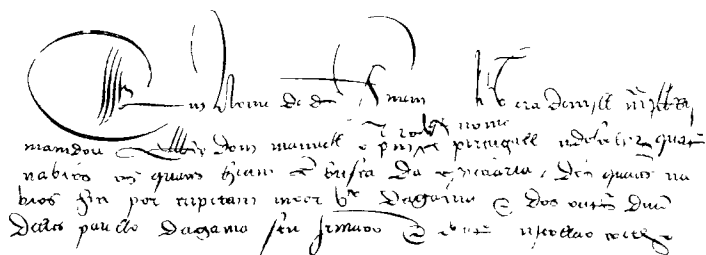 Em Nome de ds Amem Na era de mill
nome
mamdou ellRey dom manuell o primo purtugall a descobrir quatro
nabios os quaes hiam em busca da especiaria, dos quaees na
bios hia por capitam moor Vco dagama e dos outros duũ
deles paullo dagama seu Jrmaoo e doutro nycollao coelho